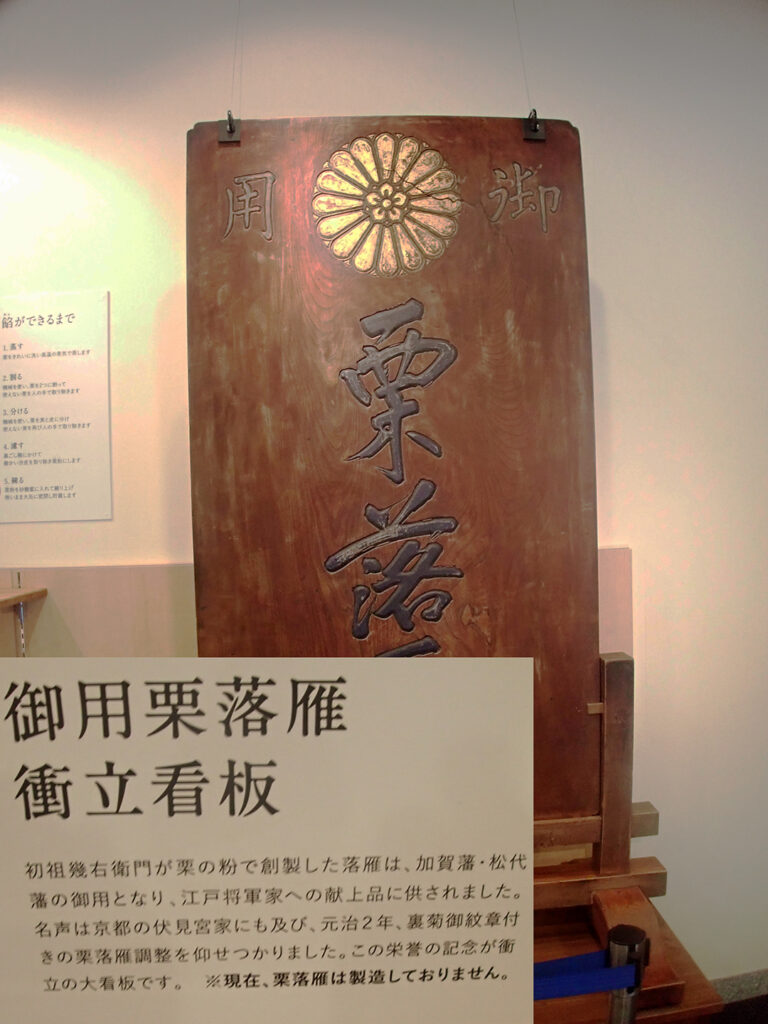 御用
栗落
餡ができるまで
1. 蒸す
2. 割る
3. 分ける
4. 濾す
5. 練る
御用栗落雁
衝立看板
初祖幾右衛門が栗の粉で創製した落雁は、加賀藩・松代
藩の御用となり、江戸将軍家への献上品に供されました。
名声は京都の伏見宮家にも及び、元治2年、裏菊御紋章付
きの栗落雁調整を仰せつかりました。この栄誉の記念が衝
立の大看板です。 ※現在、栗落雁は製造しておりません。